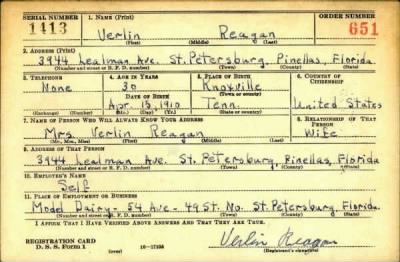 SERIAL NUMBER 1. NAME (Print) ORDER NUMBER
1413 Verlin Reagan 651
(First) (Middle) (Last)
2. ADDRESS (Print)
3944 Lealman Ave. St. Petersburg, Pinellas, Florida
(Number and street or R. F. D. number) (Town) (County) (State)
3. TELEPHONE 4. AGE IN YEARS 5. PLACE OF BIRTH 6. COUNTRY OF CITIZENSHIP
None 30 Knoxville
DATE OF BIRTH (Town or county)
Apr. 15, 1910 Tenn. United States
(Exchange) (Number) (Mo.) (Day) (Yr.) (State or country)
7. NAME OF PERSON WHO WILL ALWAYS KNOW YOUR ADDRESS 8. RELATIONSHIP OF THAT PERSON
Mrs. Verlin Reagan Wife
(Mr., Mrs., Miss) (First) (Middle) (Last)
9. ADDRESS OF THAT PERSON
3944 Lealman Ave. St. Petersburg, Pinellas, Florida
(Number and street or R. F. D. number) (Town) (County) (State)
10. EMPLOYER'S NAME
Self
11. PLACE OF EMPLOYMENT OR BUSINESS
Model Dairy - 54 Ave - 49 St. No. St. Petersburg, Florida
(Number and street or R. F. D. number) (Town) (County) (State)
I AFFIRM THAT I HAVE VERIFIED ABOVE ANSWERS AND THAT THEY ARE TRUE.
REGISTRATION CARD
D. S. S. Form 1 Verlin Reagan